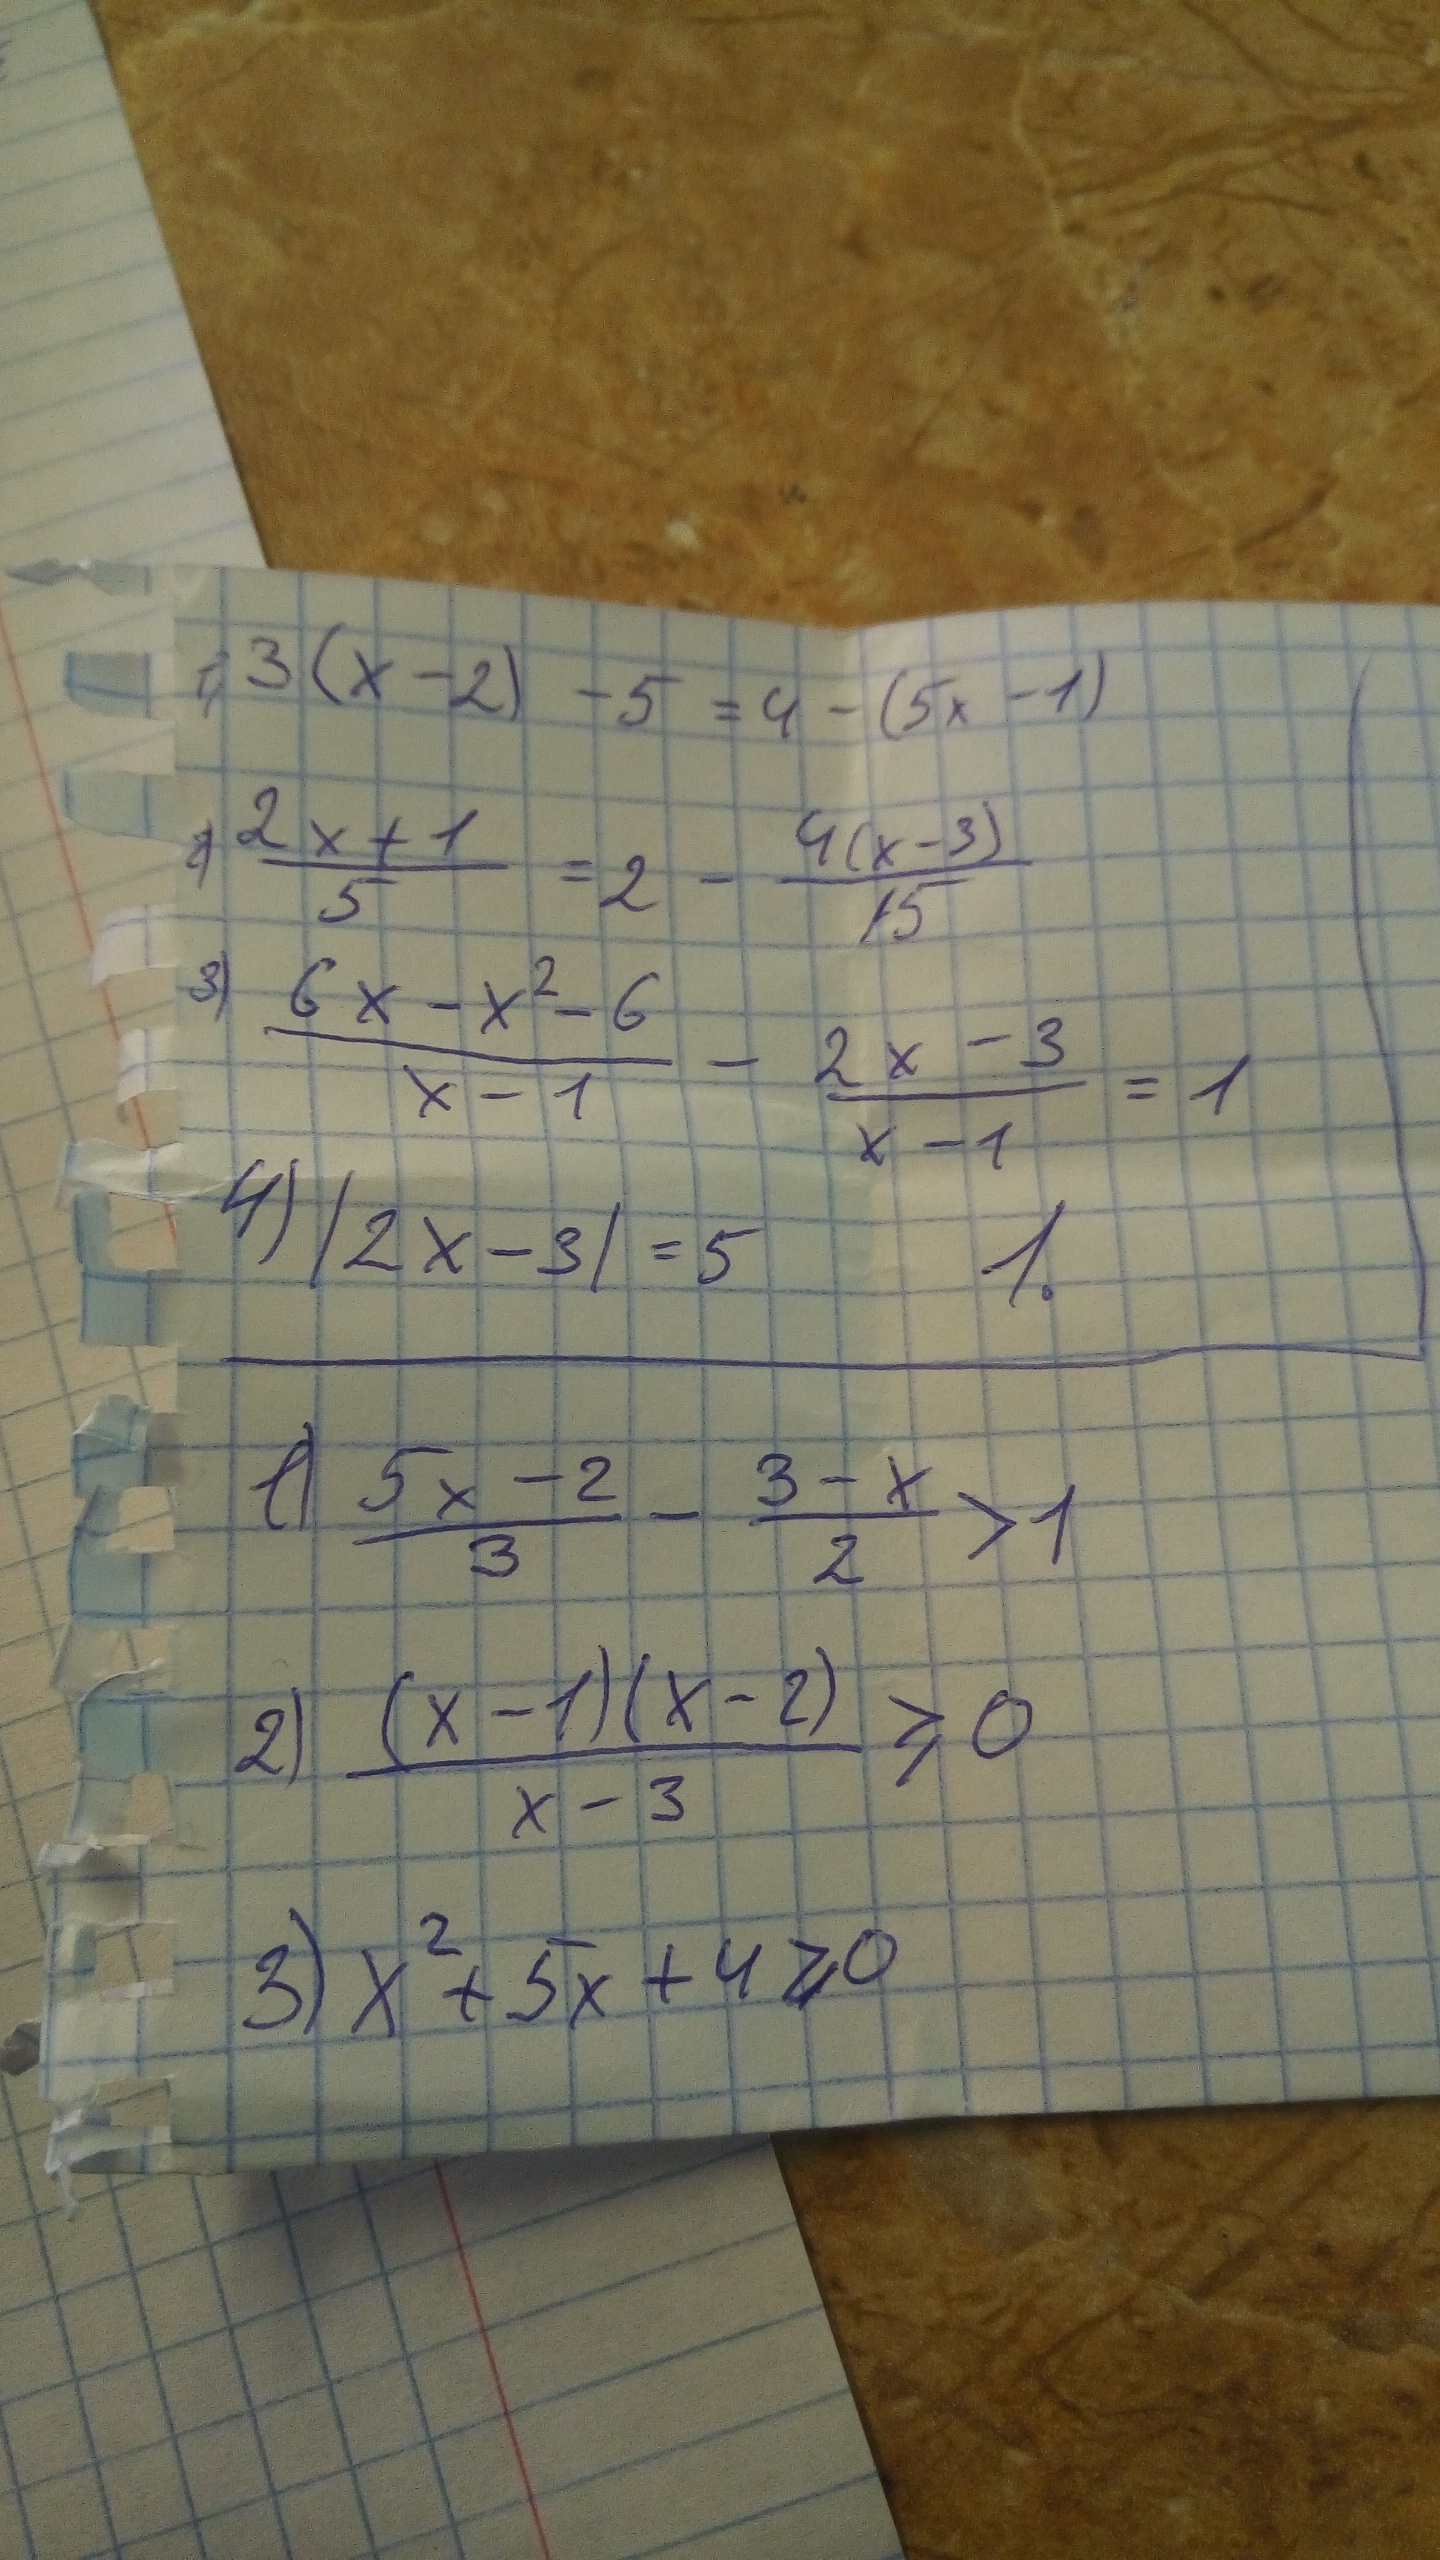 1) 3(x-2) -5 = 4 - (5x -1)
2) (2x+1)/5 = 2 - 4(x-3)/15
3) (6x - x² - 6)/(x-1) - (2x-3)/(x-1) = 1
4) |2x-3| = 5
1.
1) (5x-2)/3 - (3-x)/2 > 1
2) (x-1)(x-2)/(x-3) ⩾ 0
3) x² + 5x + 4 ⩾ 0